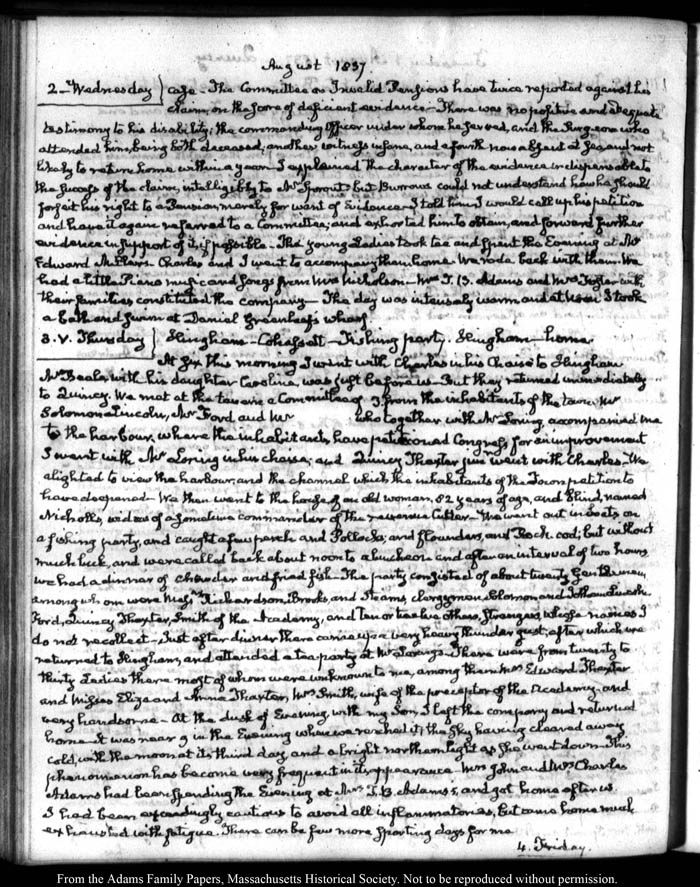 August 1837.
2 - Wednesday case - The Committee on Invalid Pensions have twice reported against his
claim, on the score of deficient evidence - There was no positive and adequate
testimony to his disability; the commanding Officer under whom he served, and the Surgeon who
attended him, being both deceased, another witness insane, and a fourth now absent at Sea, and not
likely to return home within a year - I explained the character of the evidence indispensable to
the success of the claim, intelligibly to Mr but Burrows could not understand how he should
forfeit his right to a Pension, merely for want of Evidence - I told him I would call up his petition
and have it again referred to a Committee; and exhorted him to obtain, and forward further
evidence in support of it, if possible. - The young Ladies took tea and spent the Evening at Mr
Edward Miller's. Charles and I went to accompany them home. We rode back with them. We
had a little Piano music and songs from Mrs Nicholson - Mrs T. B. Adams and Mrs Foster with
their families constituted the company - The day was intensely warm and at Noon I took
a bath and swim at Daniel Greenleaf's wharf.
3. V. Thursday Hingham - Cohasset - Fishing party. Hingham - home.
At six this morning I went with Charles in his Chaise to Hingham
Mr Beale, with his daughter Caroline, was just before us - But they returned immediately
to Quincy. We met at the tavern a Committee of 3 from the inhabitants of the town Mr
Solomon Lincoln, Mr Ford and Mr who together with Mr Loring, accompanied me
to the harbour, where the inhabitants have petitioned Congress for an improvement
I went with Mr Loring in his chaise; and Quincy Thaxter junr went with Charles - We
alighted to view the harbour, and the channel which the inhabitants of the Town petition to
have deepened - We then went to the house of an old woman, 82 years of age, and blind, named
Nicholls, widow of a sometime commander of the revenue Cutter - We went out in boats on
a fishing party, and caught a few perch and Pollocks; and flounders, and Rock cod; but without
much luck, and were called back about noon to a luncheon and after an interval of two hours
we had a dinner of chowder and fried fish - The party consisted of about twenty Gentlemen,
among whom were Messrs Richardson, Brooks and Stearns, clergymen, Solomon and Jotham Lincoln,
Ford, Quincy Thaxter, Smith of the Academy, and ten or twelve others, strangers, whose names I
do not recollect - Just after dinner there came up a very heavy thunder gust, after which we
returned to Hingham, and attended a tea party at Mr Loring's - There were from twenty to
thirty Ladies there most of whom were unknown to me, among them Mrs Edward Thaxter
and Misses Eliza and Anna Thaxter, Mrs Smith, wife of the preceptor of the Academy, and
very handsome - At the dusk of Evening, with my Son, I left the company and returned
home - It was near 9 in the Evening when we reached it; the Sky having cleared away
cold, with the moon at its third day, and a bright northern light as she went down - This
phenomenon has become very frequent in its appearance - Mrs John and Mrs Charles
Adams had been spending the Evening at Mrs T. B. Adams's, and got home after us.
I had been exceedingly cautious to avoid all inflammatories, but came home much
exhausted with fatigue. There can be few more sporting days for me
4. Friday.
From the Adams Family Papers, Massachusetts Historical Society. Not to be reproduced without permission.